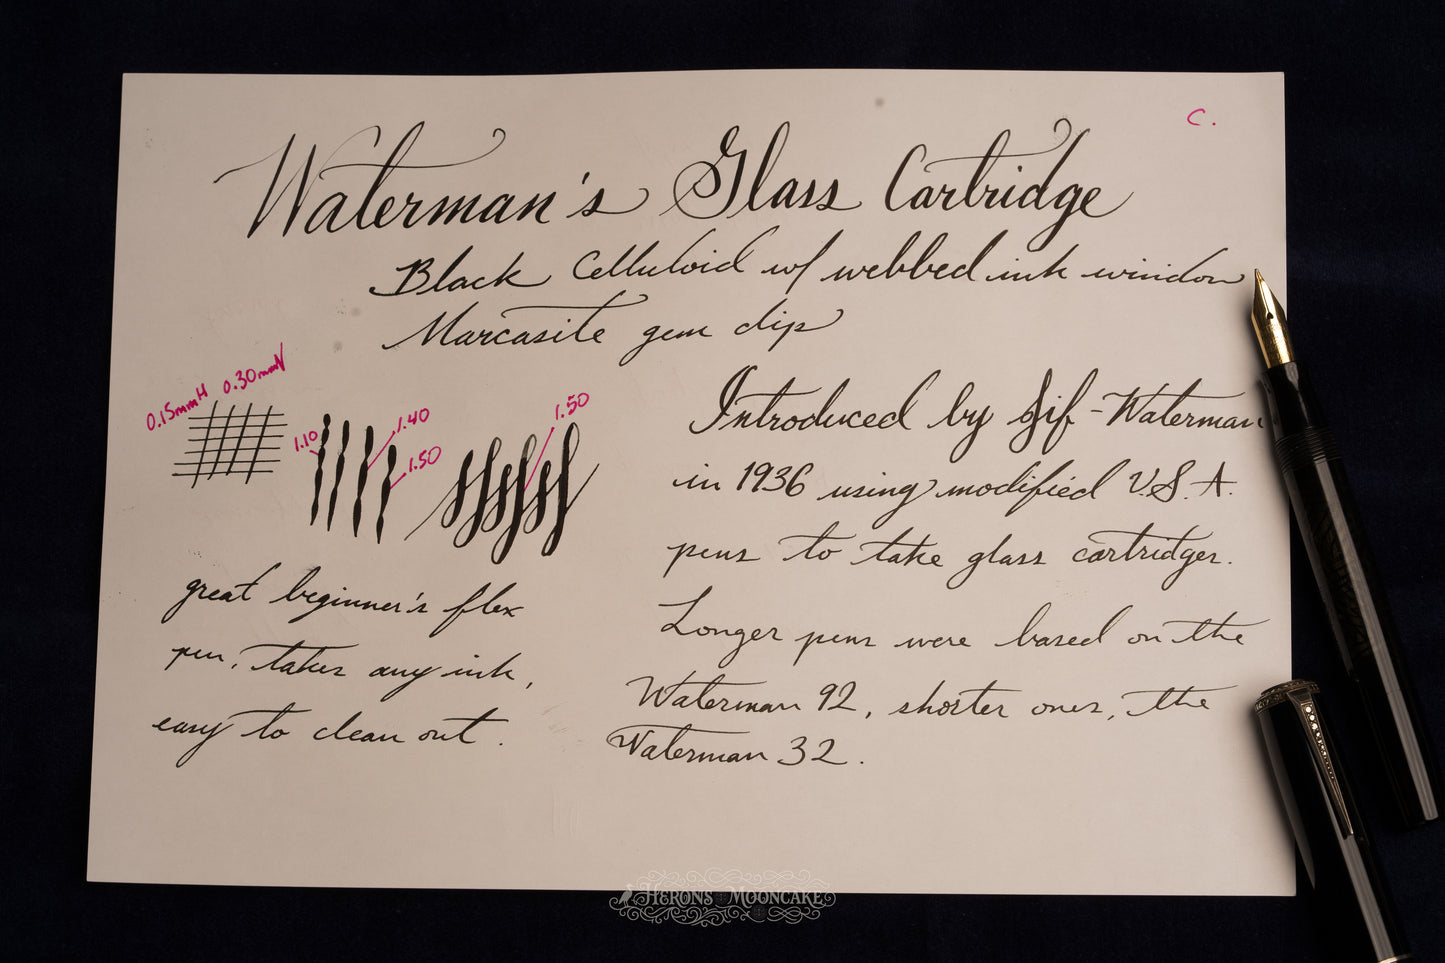 C.
Waterman's Glass Cartridge
Black Celluloid w/ webbed ink window
Marcasite gem clip
0.15mmH 0.30mmV
1.10
1.40
1.50
1.50
great beginner's flex
pen, takes any ink,
easy to clean out.
Introduced by Jif-Waterman
in 1936 using modified U.S.A.
pens to take glass cartridges.
Longer pens were based on the
Waterman 92, shorter ones, the
Waterman 32.
HERONS MOONCAKE